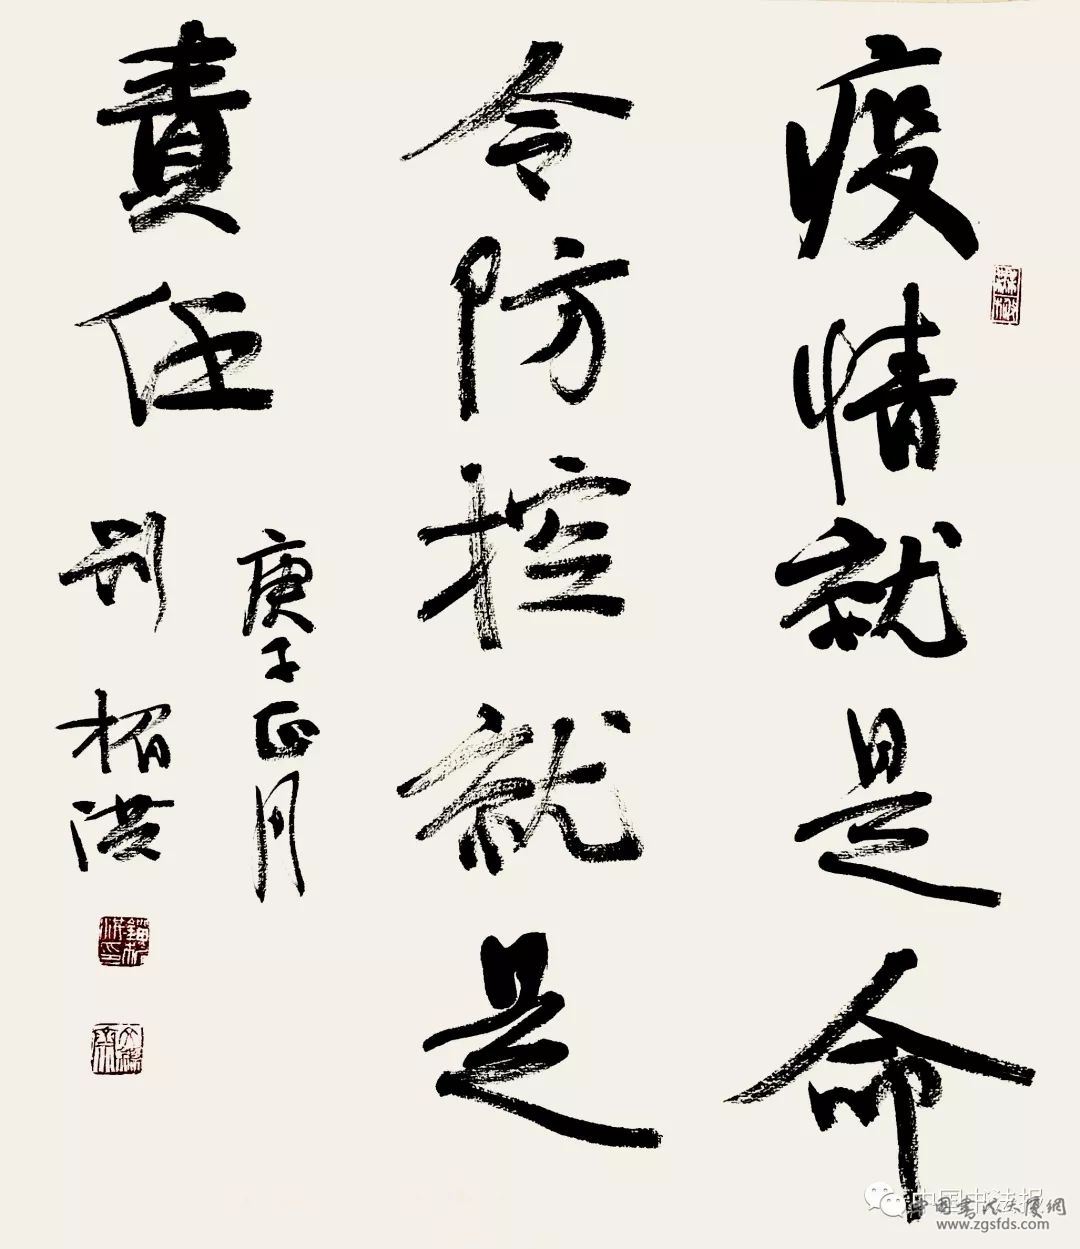 疫情就是命
令防控就是
責任
庚子正月
刘楣洪
中国书法报
中国書法大厦網
www.zgsfds.com